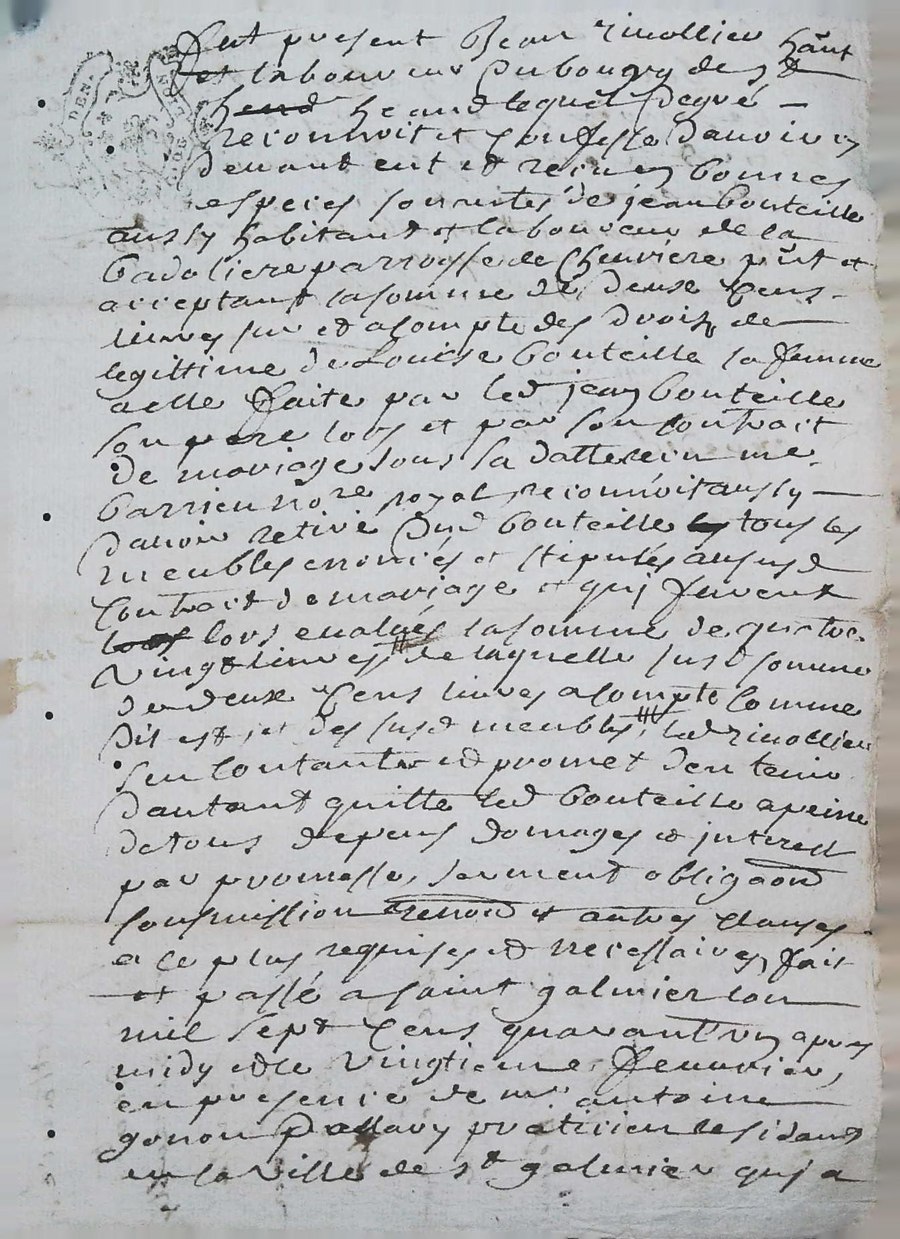 fut present Jean rivollier hânt
et laboureur du bourg de st
heand lequel degré
reconnoit et confesse davoir cy
devant eut et receu en bonnes
especes comptés de jean bouteille
aussy habitant et laboureur de la
badoliere parroisse de Cheuriere pnt et
acceptant la somme de deux Cens
livres sur et acompte des droits de
legittime de Louise bouteille sa femme
a elle faite par led jean bouteille
son pere lors et par son contrait
de mariage sous sa datte receu me
barrieu nore royal, reconnoit aussy
davoir retiré dud bouteille tous les
meubles enoncés et stipulés au susd
Contrait de mariage et quj furent
lors evalués la somme de quatre
vingt livres, de laquelle susd somme
de deux Cens livres acompte comme
dit est, et des susd meubles, led rivollier
sen contante et promet den tenir
dautant quitte led bouteille a peine
de tous depens domages et interest
par promesse, serment obligaon
soubmission renon et autres clauses
a ce plus requises et necessaires, fait
et passé a saint galmier lan
mil sept Cens quarant un apres
midy et le vingtieme fevrier,
en presence de mr antoine
gonon praticien residant
en la ville de st galmier quj a